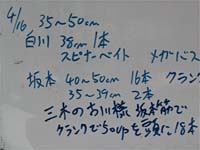 4/16 35~50cm
白川 38cm 1本
スピナーベイト メガバス
坂本 40~50cm 16本 クランク
35~39cm 2本
三木の古川様 坂本筋で
クランクで50upを頭に18本